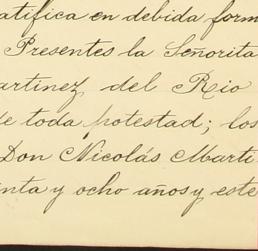 ratifica en debida form
Presentes la Señorita
artinez del Rio
de toda potestad; los
Don Nicolás Marti
inta y ocho años y este